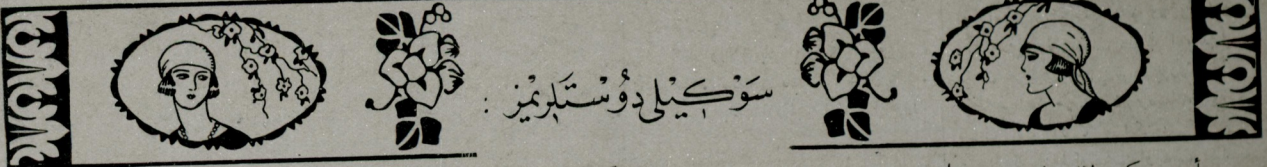 سَوْكِيْلى دُوْسْتَلِرِيْمْز :